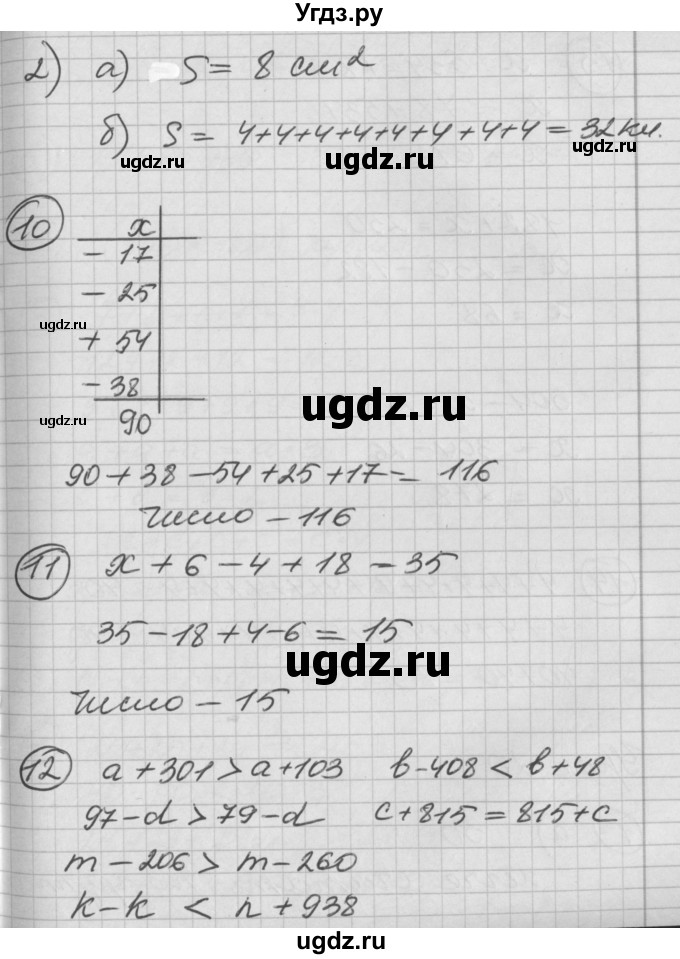 Угдз.ру
2) а) S = 8 см²
б) S = 4+4+4+4+4+4+4+4 = 32 кл.
ugdz.ru ugdz.ru
10 x
- 17
- 25
ugdz.ru
+ 54
- 38
ugdz.ru ugdz.ru
90
90 + 38 - 54 + 25 + 17 = 116
Число - 116
11 x + 6 - 4 + 18 = 35
35 - 18 + 4 - 6 = 15
ugdz.ru
Число - 15
12 a + 301 > a + 103 b - 408 < b + 48
97 - d > 79 - d c + 815 = 815 + c
m - 206 > m - 260
k - k < n + 938
ugdz.ru